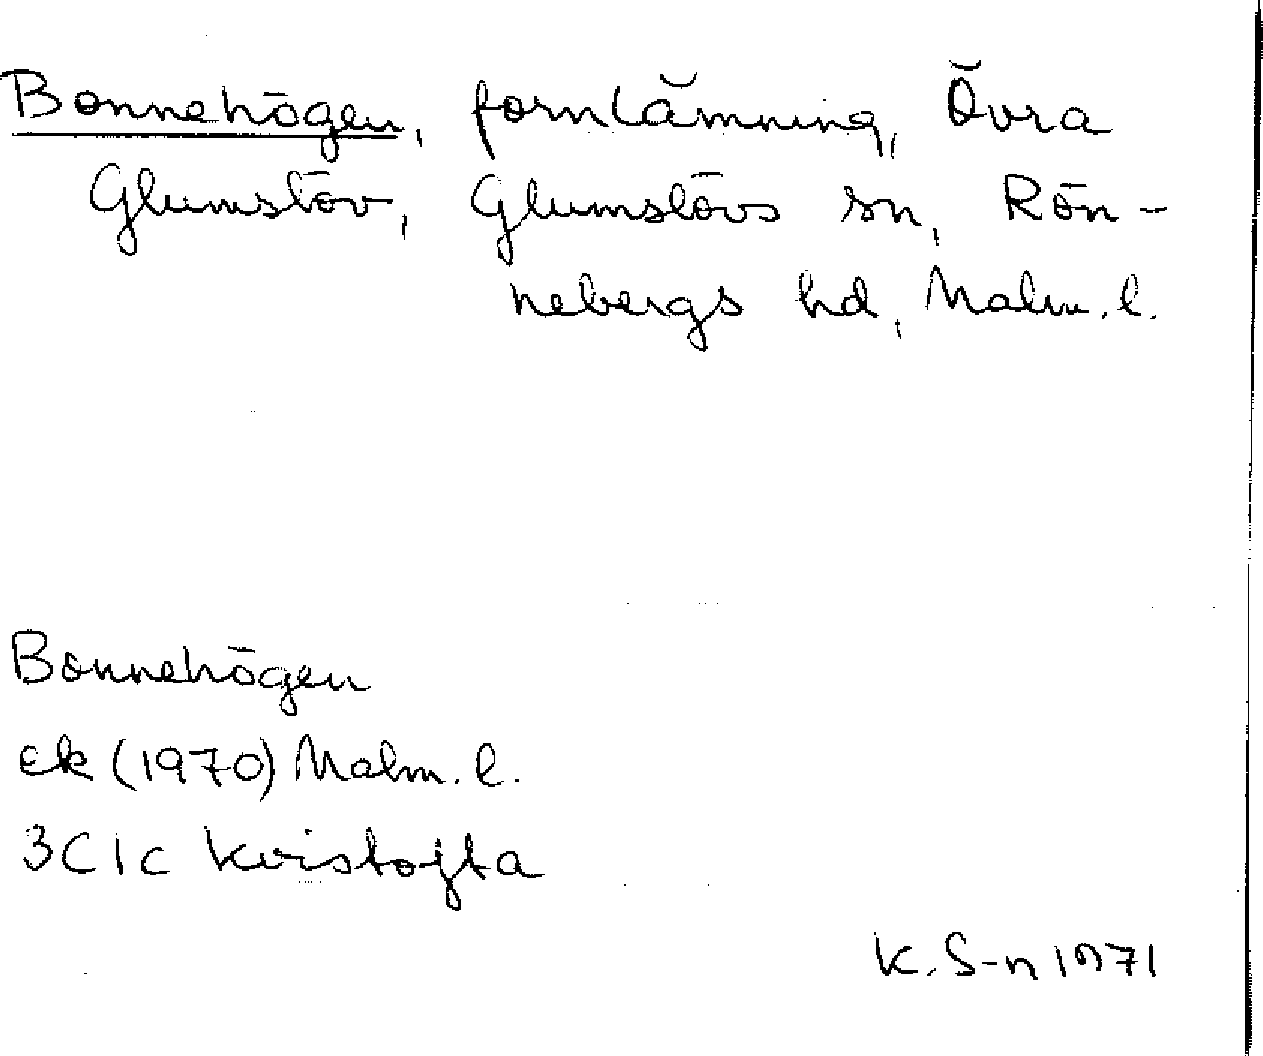 Bonnehögen, fornlämning, Övra
Glumslöv, Glumslövs sn, Rön-
nebergs hd, Malm. l.
Bonnehögen
ek (1970) Malm. l.
3C 1c Kvistofta
K. S-n 1971